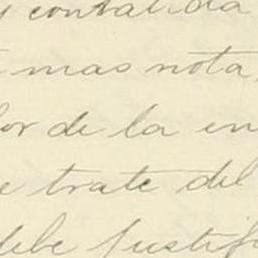 y contabilida
mas nota
or de la en
e trate del
debe justif